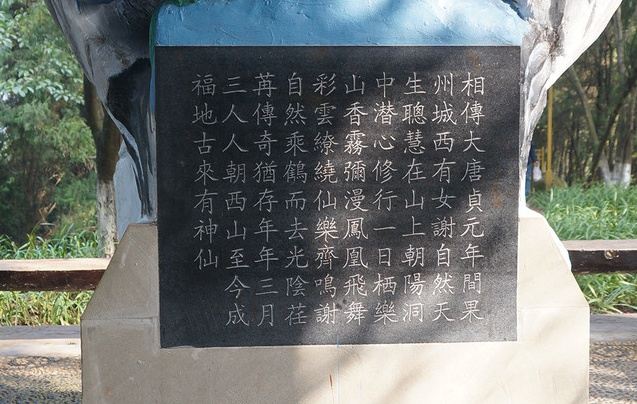 相傳大唐貞元年間果
州城西有女謝自然天
生聰慧在山上朝陽洞
中潜心修行一日栖樂
山香霧彌漫鳳凰飛舞
彩雲繚繞仙樂齊鳴謝
自然乘鶴而去光陰荏
苒傳奇猶存年年三月
三人人朝西山至今成
福地古來有神仙